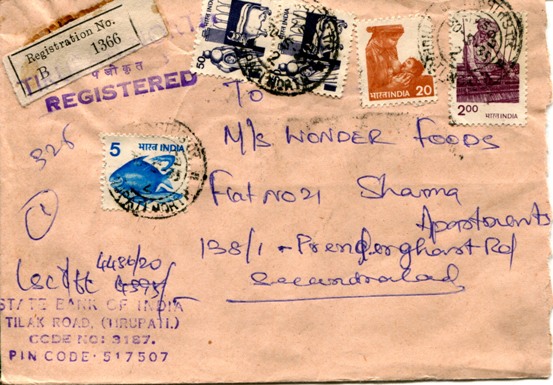 Registration No.
B 1366
पंजीकृत
REGISTERED
50
भारत INDIA
भारत INDIA
20
2.00
भारत INDIA
5 भारत INDIA
326
1
To
M/s WONDER FOODS
Flat No 21 Sharma
Apartments
138/1 - Prenderghast Rd
Secunderabad
4486/20
STATE BANK OF INDIA
TILAK ROAD, (TIRUPATI.)
CODE NO: 3187.
PIN CODE: 517507